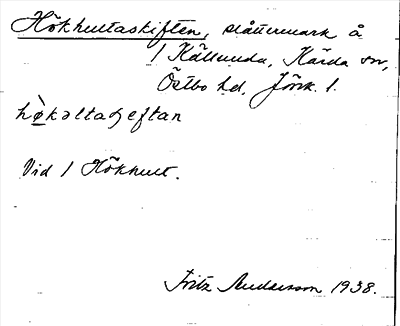 Hökhultaskiften, slåttermark å
1 Källunda, Kärda sn,
Östbo hd, Jönk. l.
hö̀kəltaʃeftan
Vid 1 Hökhult.
Fritz Andersson 1938.